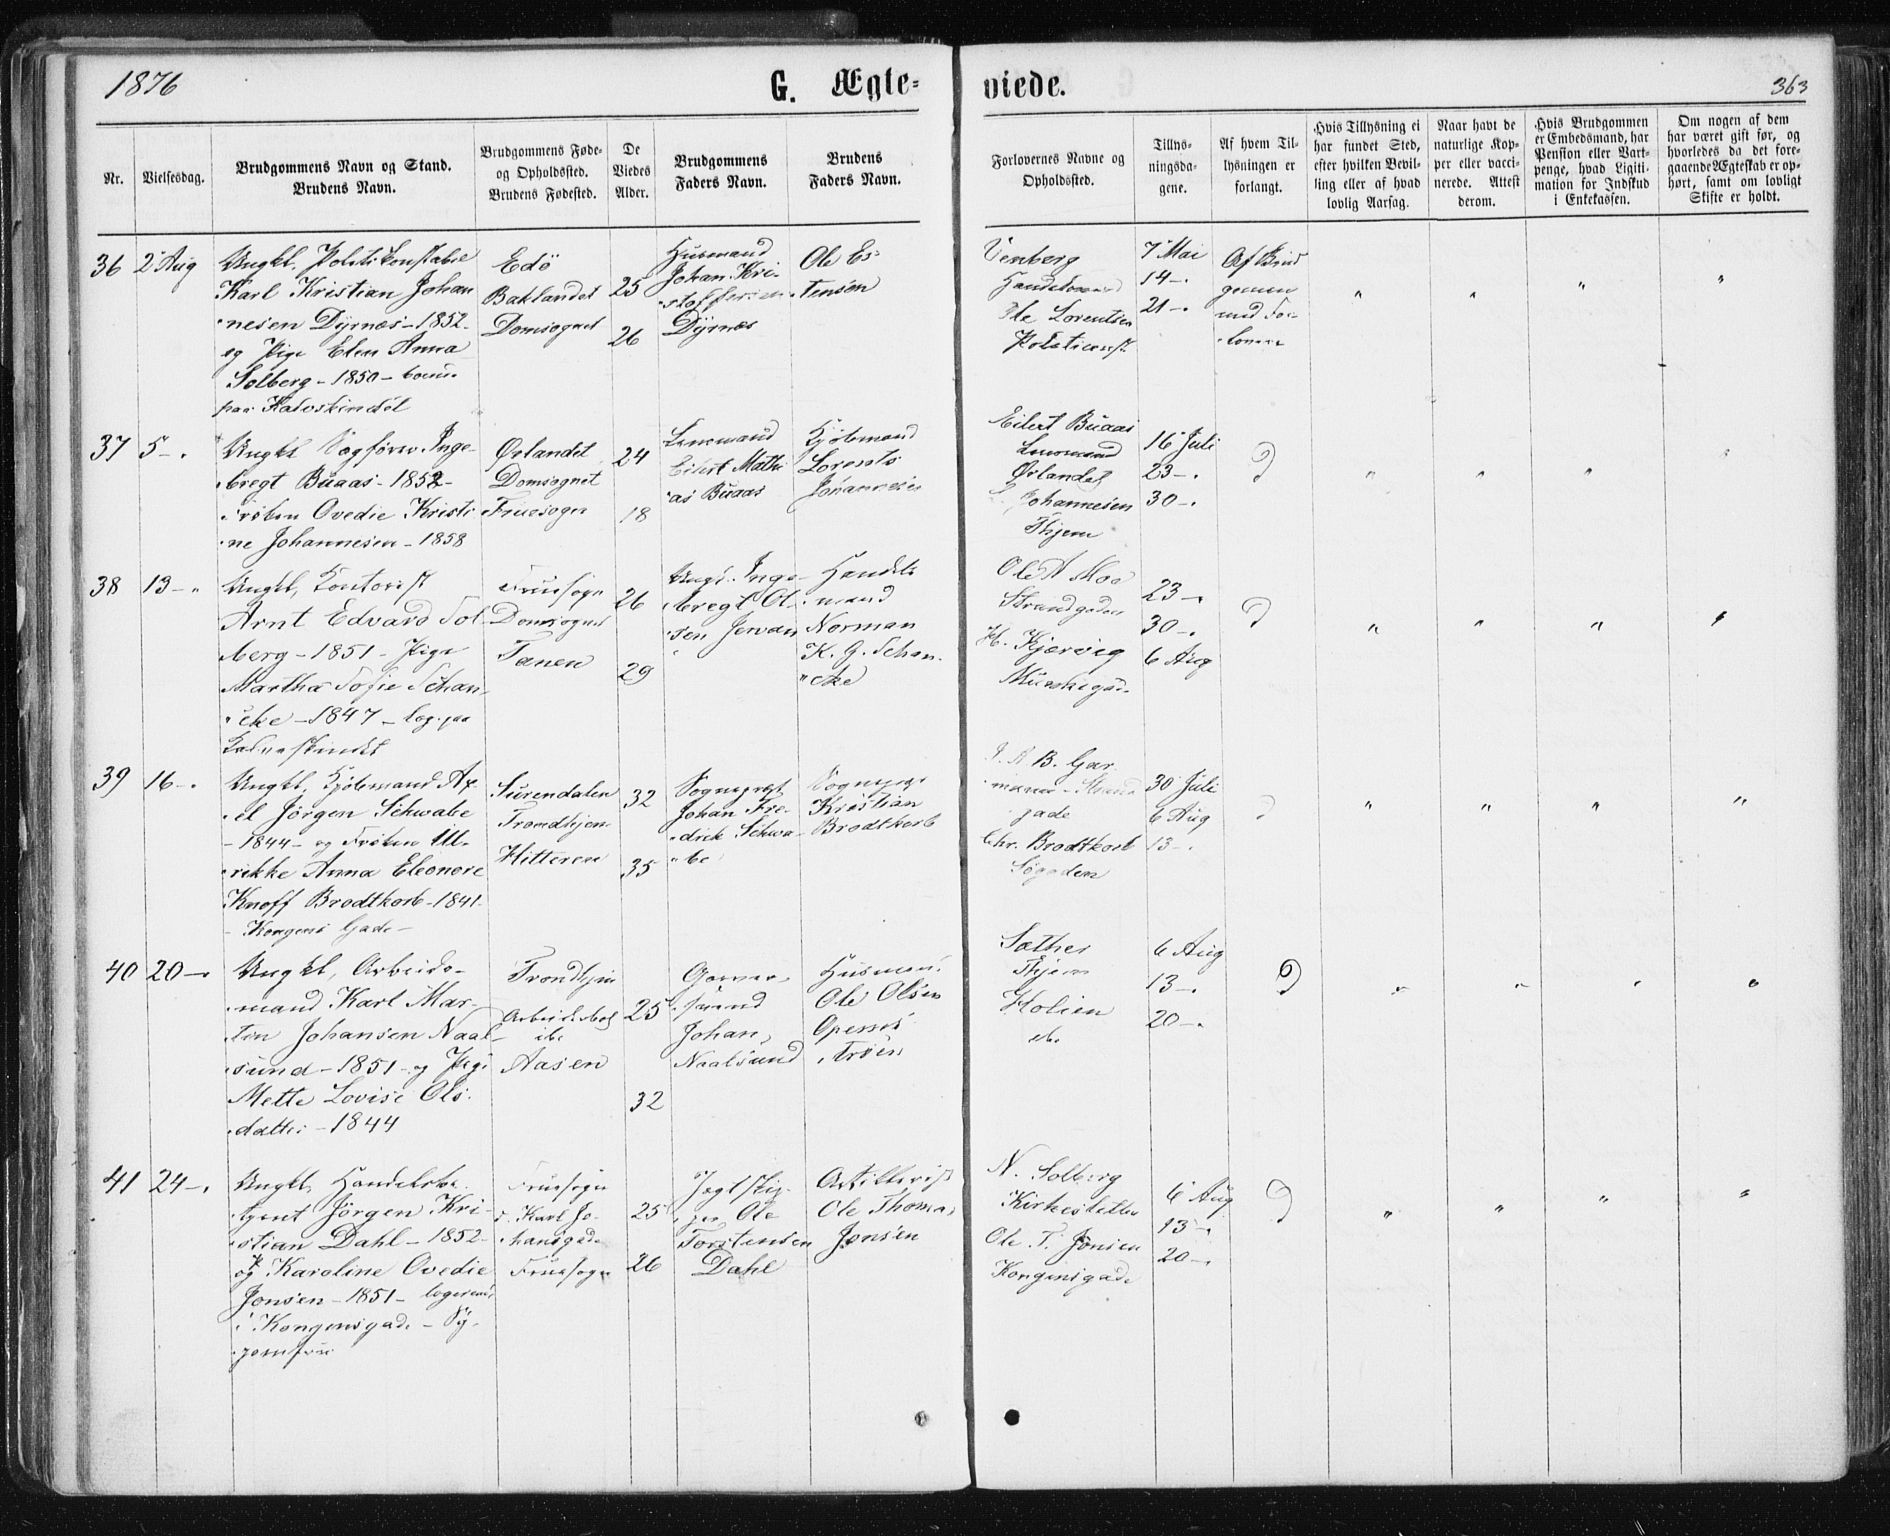 1876
G. Ægte-
viede.
363
Nr.
Vielsesdag.
Brudgommens Navn og Stand.
Brudens Navn.
Brudgommens Føde-
og Opholdssted.
Brudens Fødested.
De
Viedes
Alder.
Brudgommens
Faders Navn.
Brudens
Faders Navn.
Forlovernes Navne og
Opholdssted.
Tillys-
ningsda-
gene.
Af hvem Til-
lysningen er
forlangt.
Hvis Tillysning ei
har fundet Sted,
efter hvilken Bevil-
ling eller af hvad
lovlig Aarsag.
Naar havt de
naturlige Kop-
per eller vacci-
nerede. Attest
derom.
Hvis Brudgommen
er Embedsmand, har
Pension eller Vart-
penge, hvad Ligiti-
mation for Indskud
i Enkekassen.
Om nogen af dem
har været gift før, og
hvorledes da det fore-
gaaende Ægteskab er op-
hørt, samt om lovligt
Skifte er holdt.
36
2 Aug
Ungkl. Politikonstabel
Karl Kristian Johan
nesen Dyrnæs - 1852 -
og Pige Elen Anna
Solberg - 1850 -
paa Kalvskindet
Edö
Baklandet
Domsognet
25
26
Husmand
Johan Kri-
Dyrnæs
Ole Es-
tensen
Venberg
Ole Lorentsen
7 Mai
14 -.
21 -.
Af Brud
gommen
med For-
37
5 -.
Ungkl Sagfører Inge-
bregt Buaas - 1852 -
Frøken Ovedie Kristi
ne Johannesen - 1858
Ørlandet
Domsognet
Fruesogn
24
18
Lensmand
Eilert Mathi
as Buaas
Kjøbmand
Lorents
Johannesen
Eilert Buaas
Lensmand
Ørlandet
Johannesen
Thjem
16 Juli
23 -.
30 -.
38
13 -.
Ungkl, Kontorist
Arnt Edvard Sol
berg - 1851 - Pige
Martha Sofie Schan
cke - 1847 - log. paa
Kalvskindet
Fruesogn
Domsognet
Tanen
26
29
Ungk. Inge-
bregt Ol-
sen Jervan
Handels
mand
Norman
K. G. Schan-
cke
Ole A Moe
Strandgaden
H. Kjærvig
23 -.
30 -.
6 Aug
39
16 -.
Ungkl, Kjøbmand Ax-
el Jörgen Schwabe
- 1844 - og Frøken Ul-
rikke Anna Eleonore
Knoff Brodtkorb - 1841 -
- Kongens Gade -
Surendalen
Trondhjem
Hitteren
32
35
Sognepræst
Johan Fre-
drik Schwa-
be
Sognepræst
Kristian
Brodtkorb
B. Gar
mann - Strand
gade
Chr. Brodtkorb
Søgaden
30 Juli
6 Aug
13 -.
40
20 -.
Ungkl, Arbeids-
mand Karl Mar-
tin Johansen Naal-
sund - 1851 - og Pige
Mette Lovise Ols-
datter - 1844
Trondhjem
Aasen
25
32
Johan,
Naalsund
Husmand
Ole Olsen
Sæther
Thjem
Holien
6 Aug
13 -.
20 -.
41
24 -.
Ungkl, Handels
Agent Jörgen Kri-
stian Dahl - 1852 -
og Karoline Ovedie
Jonsen - 1851 - logerende
i Kongensgade - Sy-
jomfru
Fruesogn
Karl Jo-
hansgade
Fruesogn
25
26
Jagtskip-
per Ole
Torstensen
Dahl
Artillerist
Ole Thomas
Jonsen
N. Solberg
Kirkesletten
Ole T. Jonsen
Kongensgade
6 Aug
13 -.
20 -.